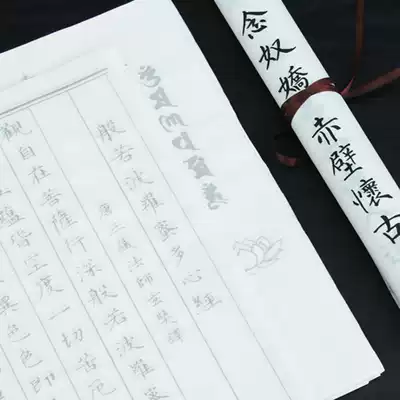 念奴嬌 赤壁懷古
般若波羅蜜多心經
唐三藏法師玄奘譯
觀自在菩薩行深般若波羅蜜
蘊皆空度一切苦厄
異色色即